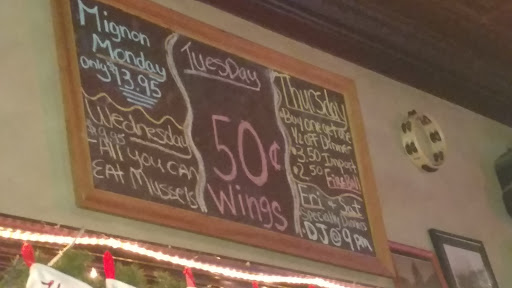 Mignon
Monday
Only $13.95
Wednesday
$9.95
-All you can
Eat Mussels
Tuesday
50¢
Wings
Thursday
Buy one get one
1/2 off Dinner
$3.50 Import
$2.50 Fireball
Fri + Sat
Specialty Dinners
DJ @ 9pm